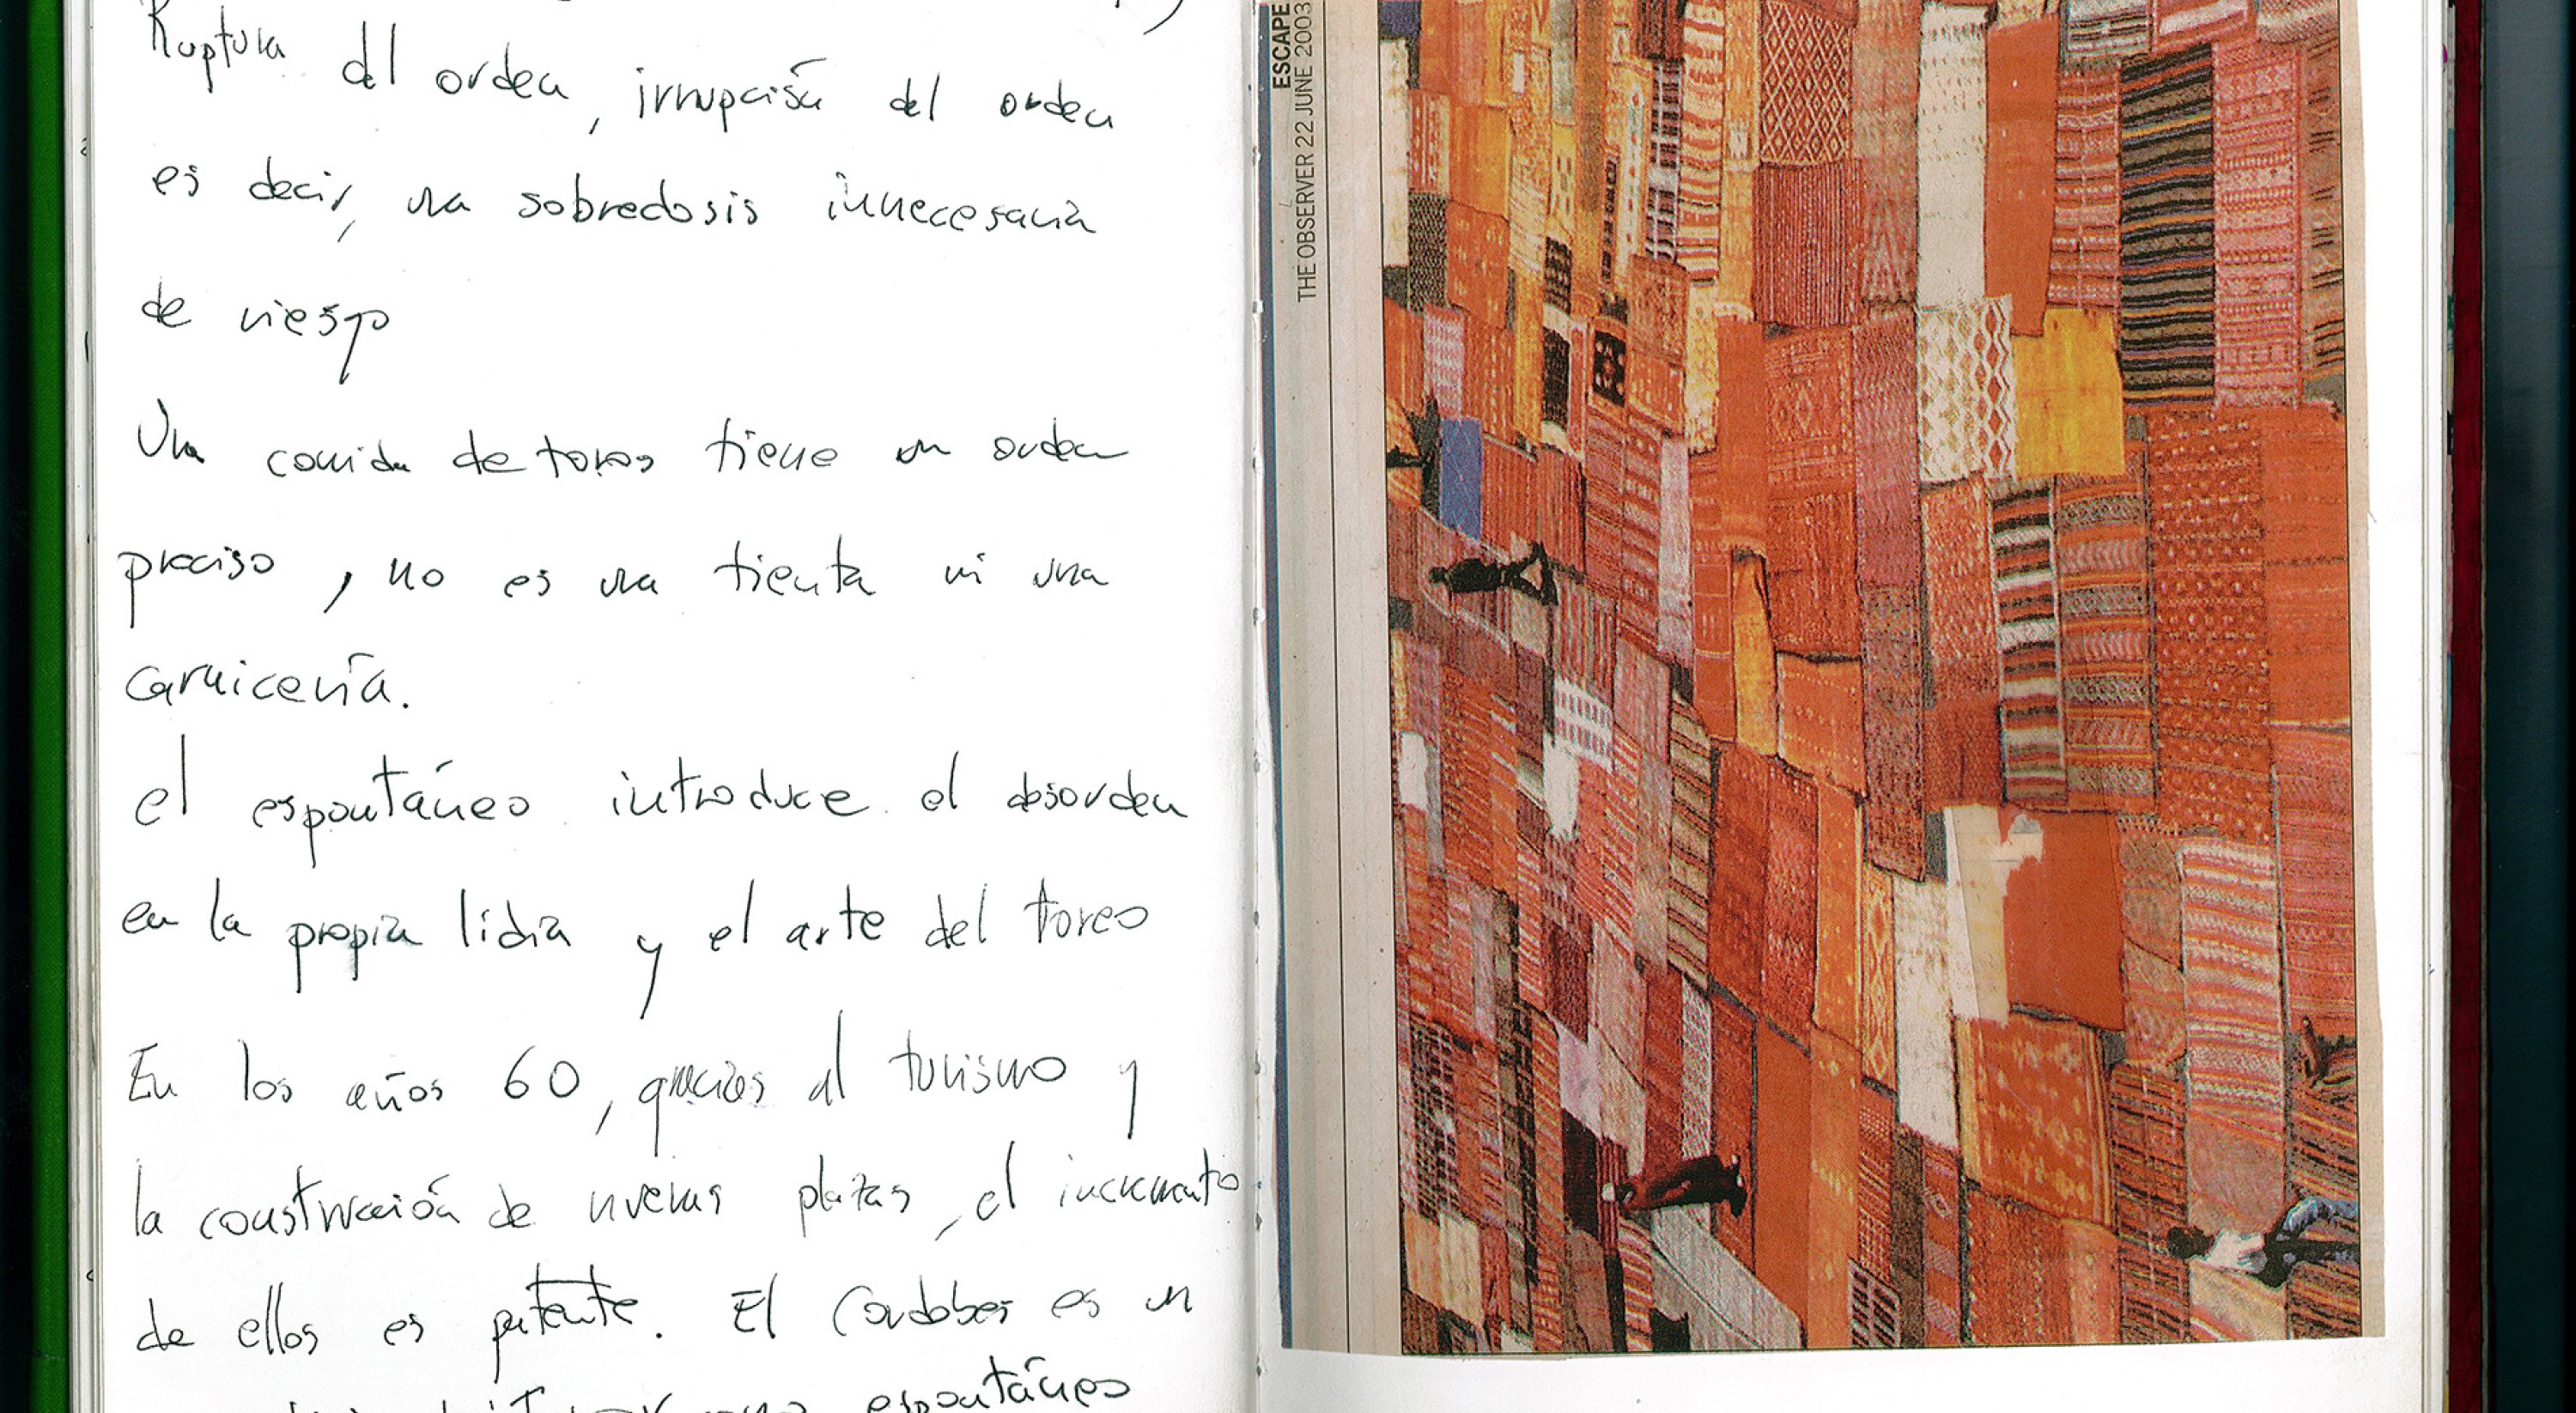 Ruptura del orden, irrupción del orden
es decir, una sobredosis innecesaria
de riesgo
Una corrida de toros tiene un orden
preciso, no es una tienta ni una
carnicería.
el espontáneo introduce el desorden
en la propia lidia y el arte del toreo
En los años 60, gracias al turismo y
la construcción de nuevas plazas, el incremento
de ellos es patente. El Cordobés es un
espontáneo
ESCAPE
THE OBSERVER 22 JUNE 2003